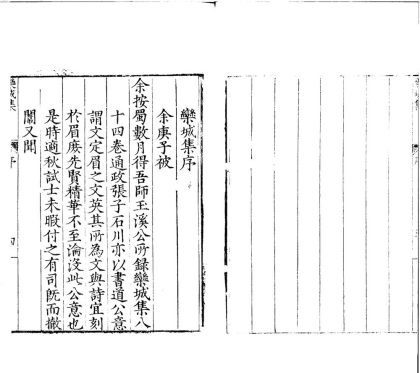 欒城集序
余庚子被
余按蜀數月得吾師玉溪公所錄欒城集八
十四卷通政張子石川亦以書道公意
謂文定眉之文英其所為文與詩宜刻
於眉庶先賢精華不至淪沒此公意也
是時適秋試士未暇付之有司既而撤
闈又聞
欒城集
序